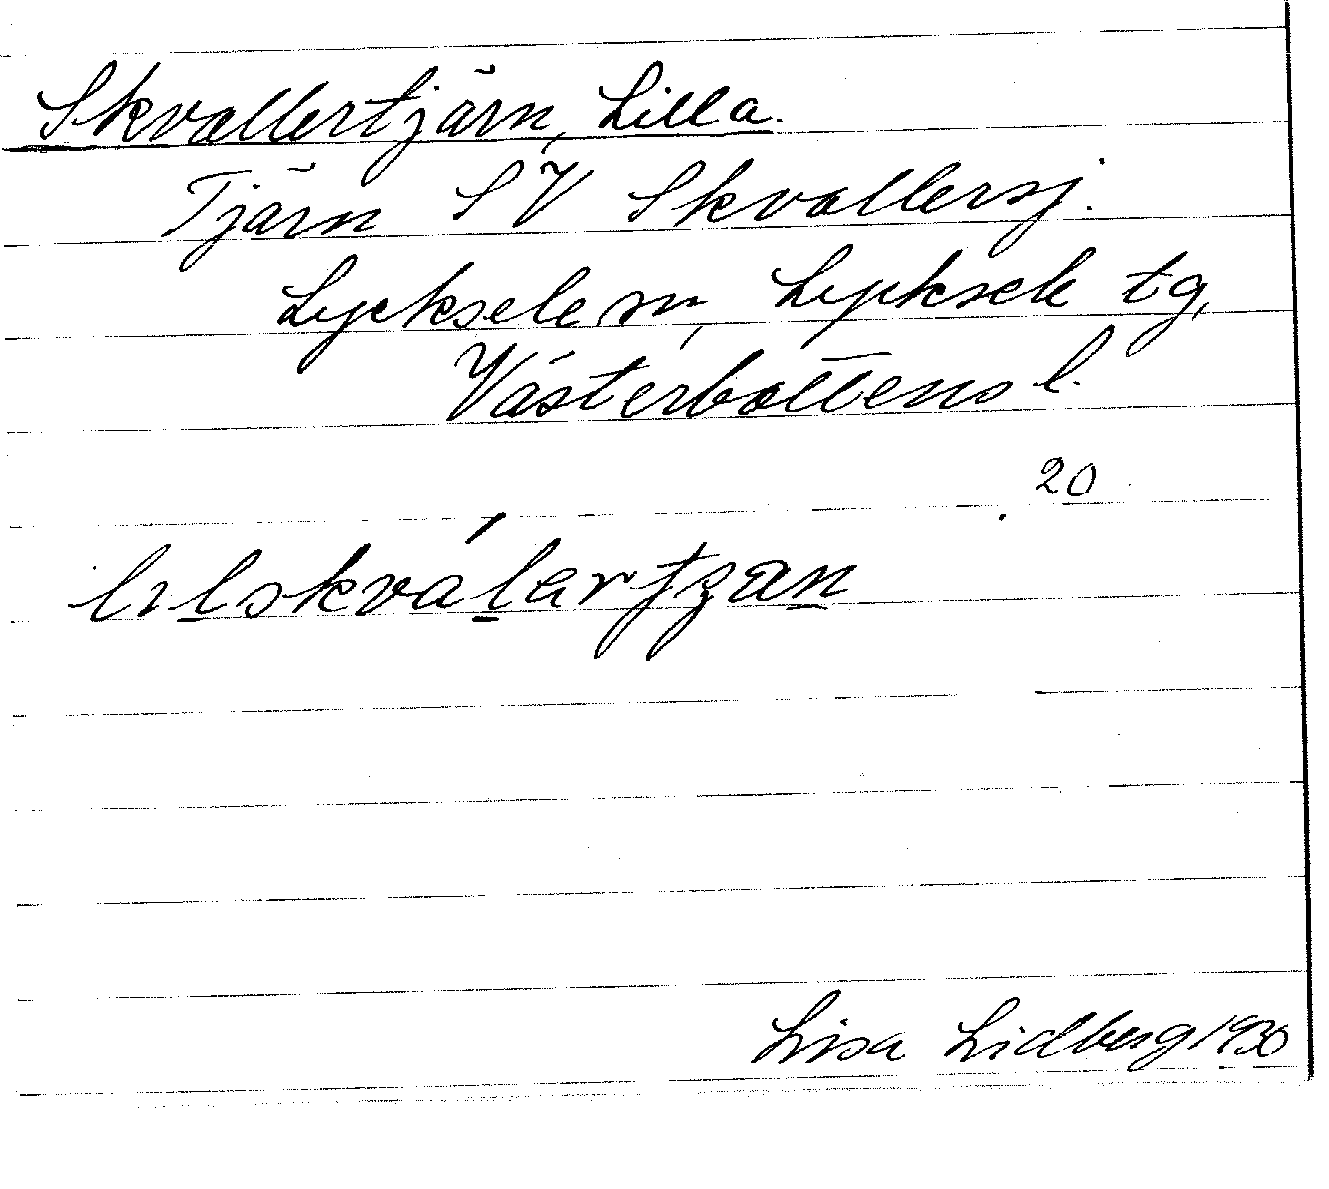 Skvallertjärn, Lilla.
Tjärn SV Skvallersj.
Lycksele sn, Lycksele tg,
Västerbottens l.
20
Lisa Lidberg 1930